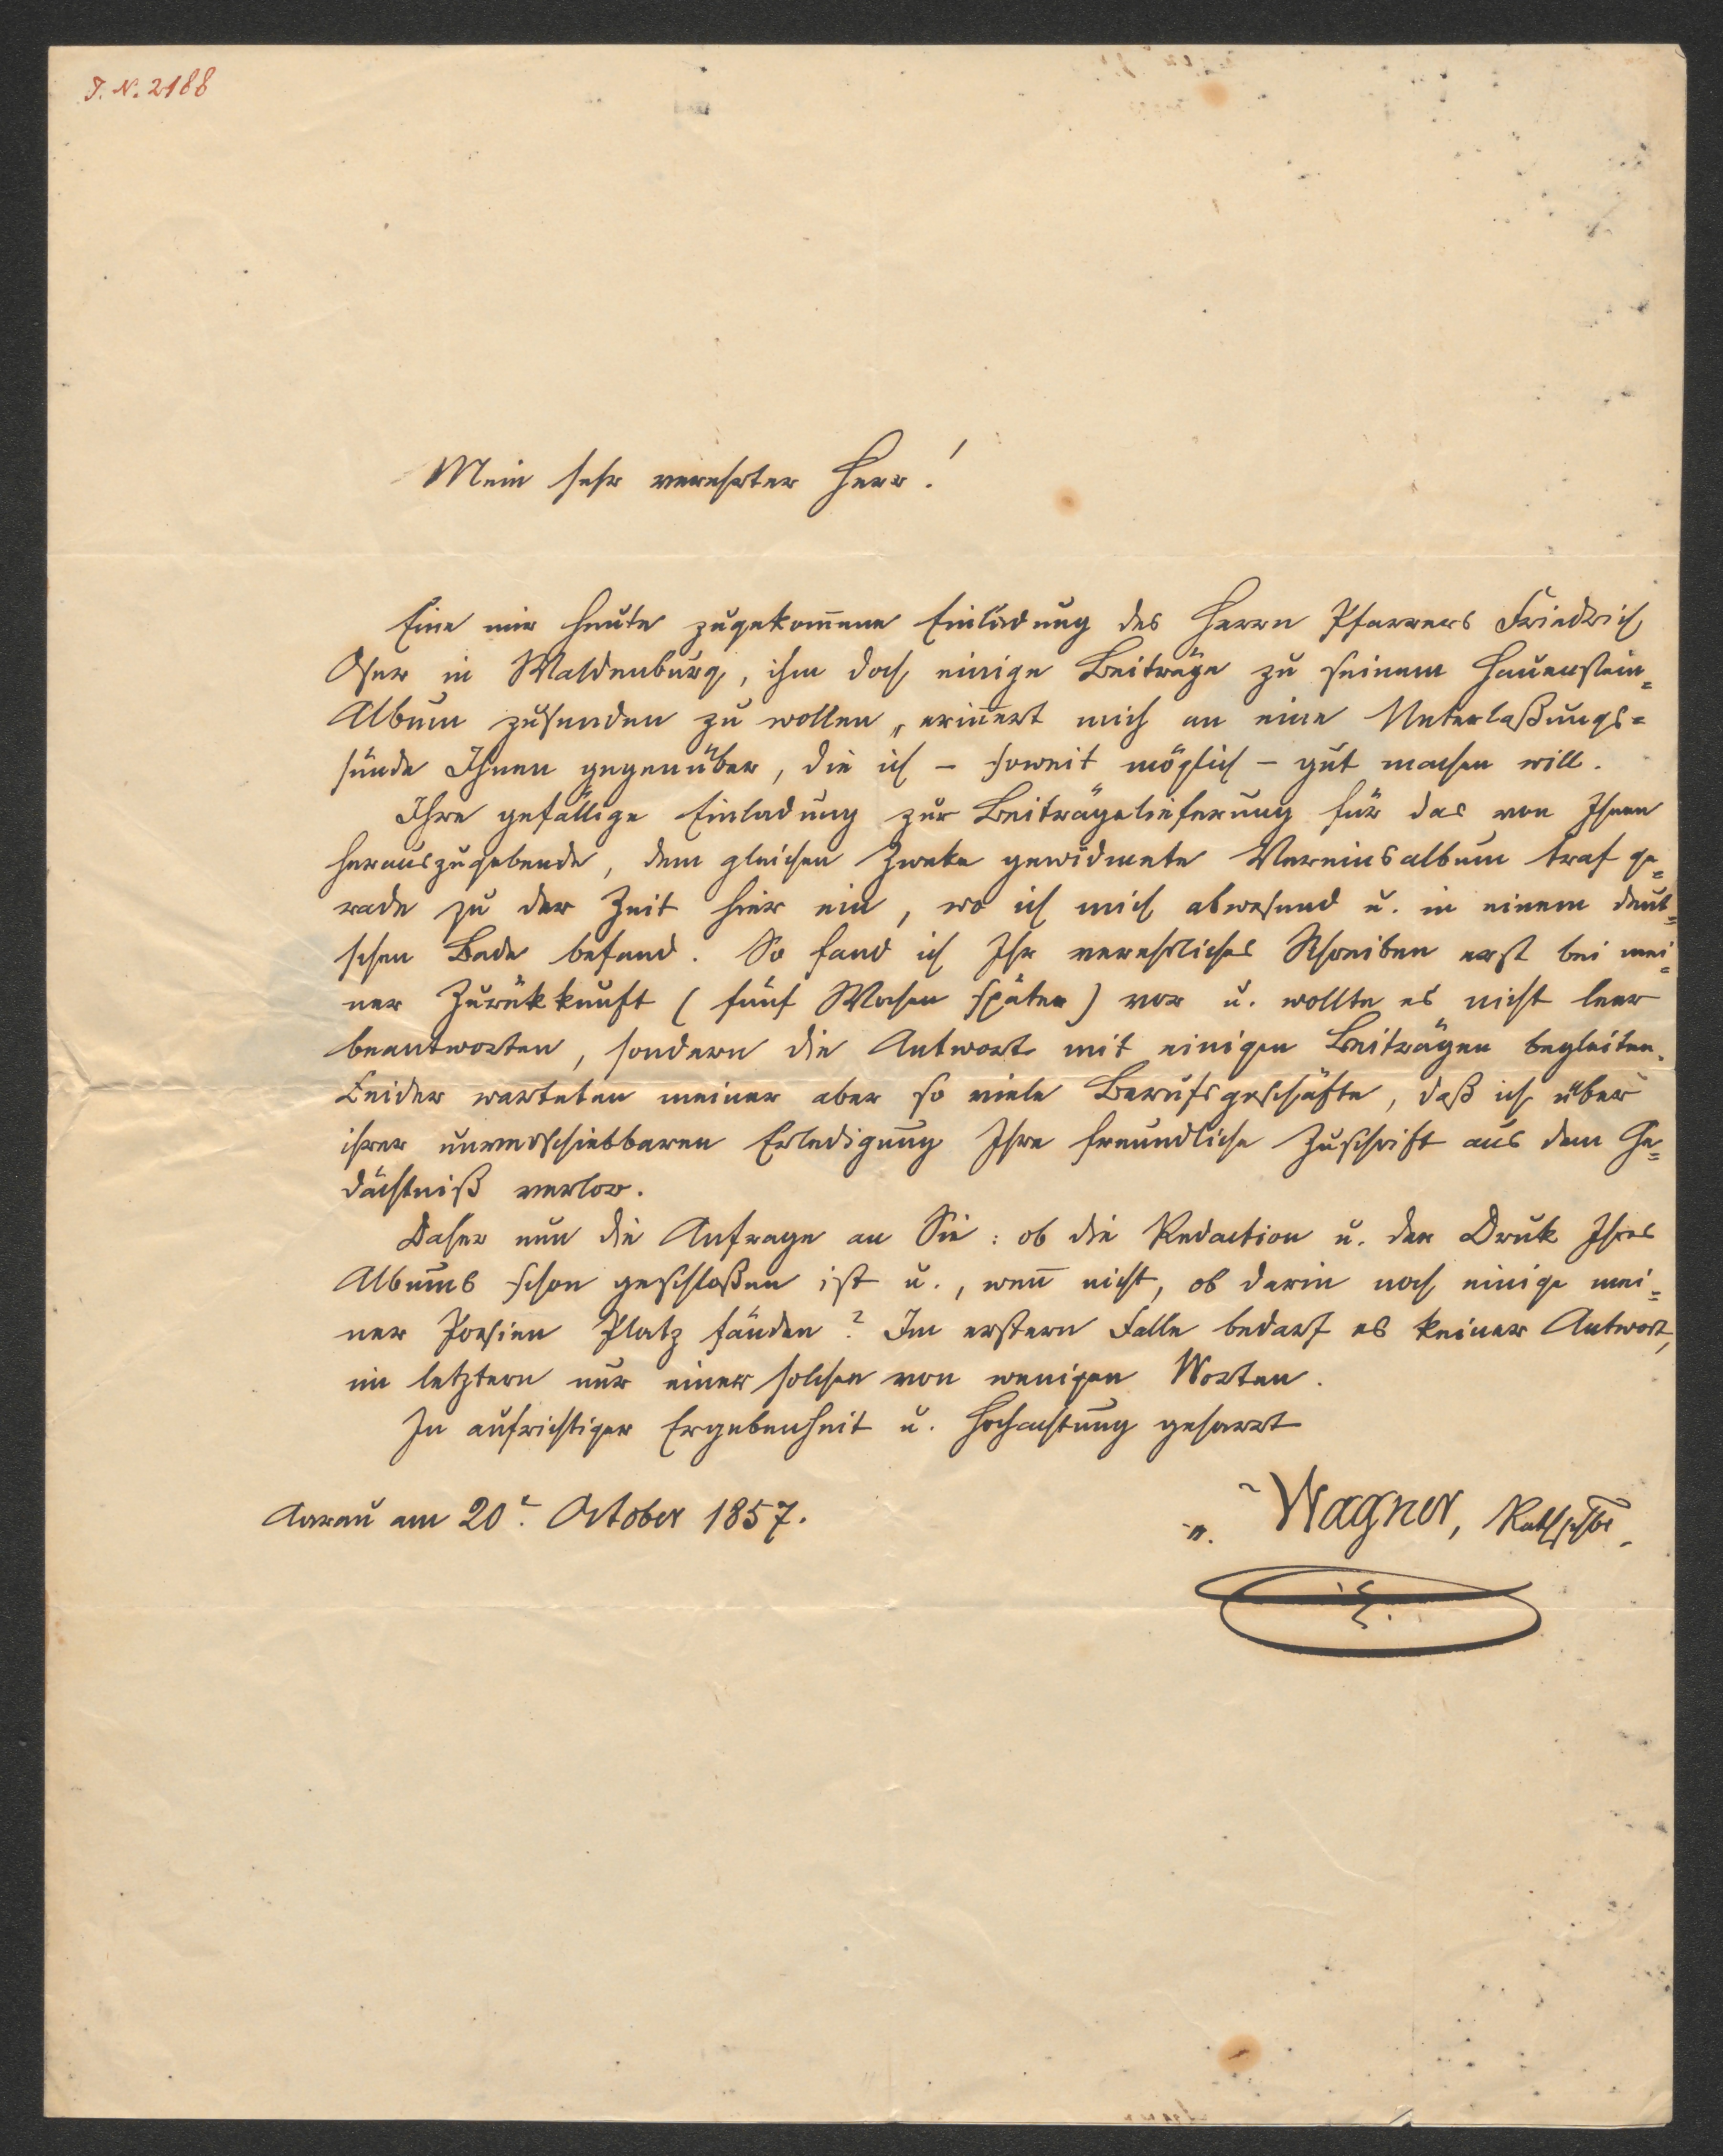 I. N. 2188
Mein sehr verehrter Herr!
Eine mir heute zugekom̅ene Einladung des Herrn Pfarrers Friedrich
Oser in Waldenburg, ihm doch einige Beiträge zu seinem Hauenstein=
Album zusenden zu wollen, erin̅ert mich an eine Unterlaßungs=
sünde Ihnen gegenüber, die ich – soweit möglich – gut machen will.
Ihre gefällige Einladung zur Beiträgelieferung für das von Ihnen
herauszugebende, dem gleichen Zweke gewidmete Vereinsalbum traf ge=
rade zu der Zeit hier ein, wo ich mich abwesend u. in einem deut=
schen Bade befand. So fand ich Ihr verehrliches Schreiben erst bei mei=
ner Zurükkunft (fünf Wochen später) vor u. wollte es nicht leer
beantworten, sondern die Antwort mit einigen Beiträgen begleiten.
Leider warteten meiner aber so viele Berufsgeschäfte, daß ich über
ihrer unverschiebbaren Erledigung Ihre freundliche Zuschrift aus dem Ge=
dächtniß verlor.
Daher nun die Anfrage an Sie: ob die Redaction u. der Druk Ihres
Albums schon geschloßen ist u., wen̅ nicht, ob darin noch einige mei=
ner Poesien Platz fänden? Im erstern Falle bedarf es keiner Antwort,
im letztern nur einer solchen von wenigen Worten.
In aufrichtiger Ergebenheit u. Hochachtung geharrt
Aarau am 20. October 1857.
Wagner,